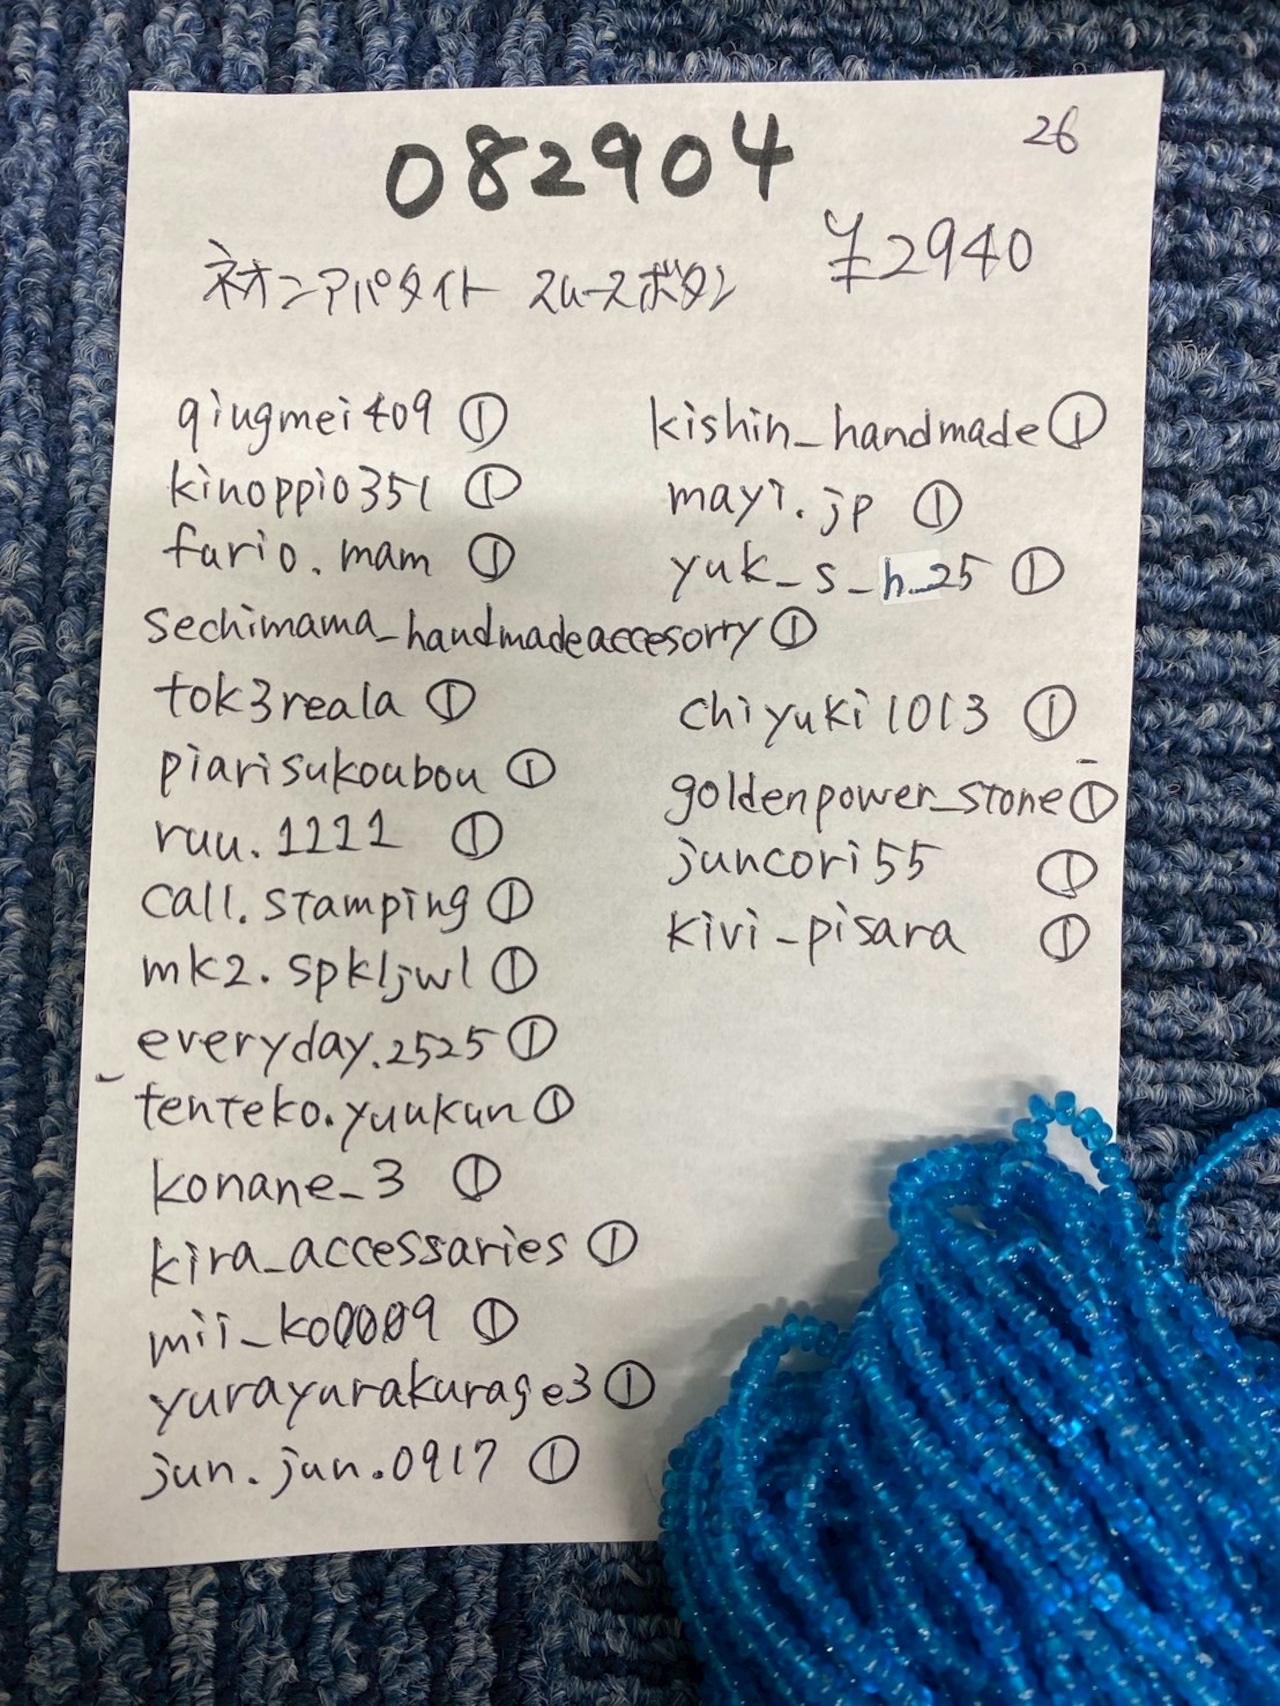 082904
26
¥2940
ネオンアパタイト スムースボタン
qiugmei409 ①
kinoppio351 ①
furio.mam ①
sechimama_handmadeaccesorry ①
tok3reala ①
piarisukoubou ①
ruu.1111 ①
call.stamping ①
mk2.spkljwl ①
everyday.2525 ①
tenteko.yuukun ①
konane_3 ①
kira_accessaries ①
mii_ko0009 ①
yurayurakurage3 ①
jun.jun.0917 ①
kishin_handmade ①
mayi.jp ①
yuk_s_h_25 ①
chiyuki1013 ①
goldenpower_stone ①
juncori55 ①
kivi_pisara ①